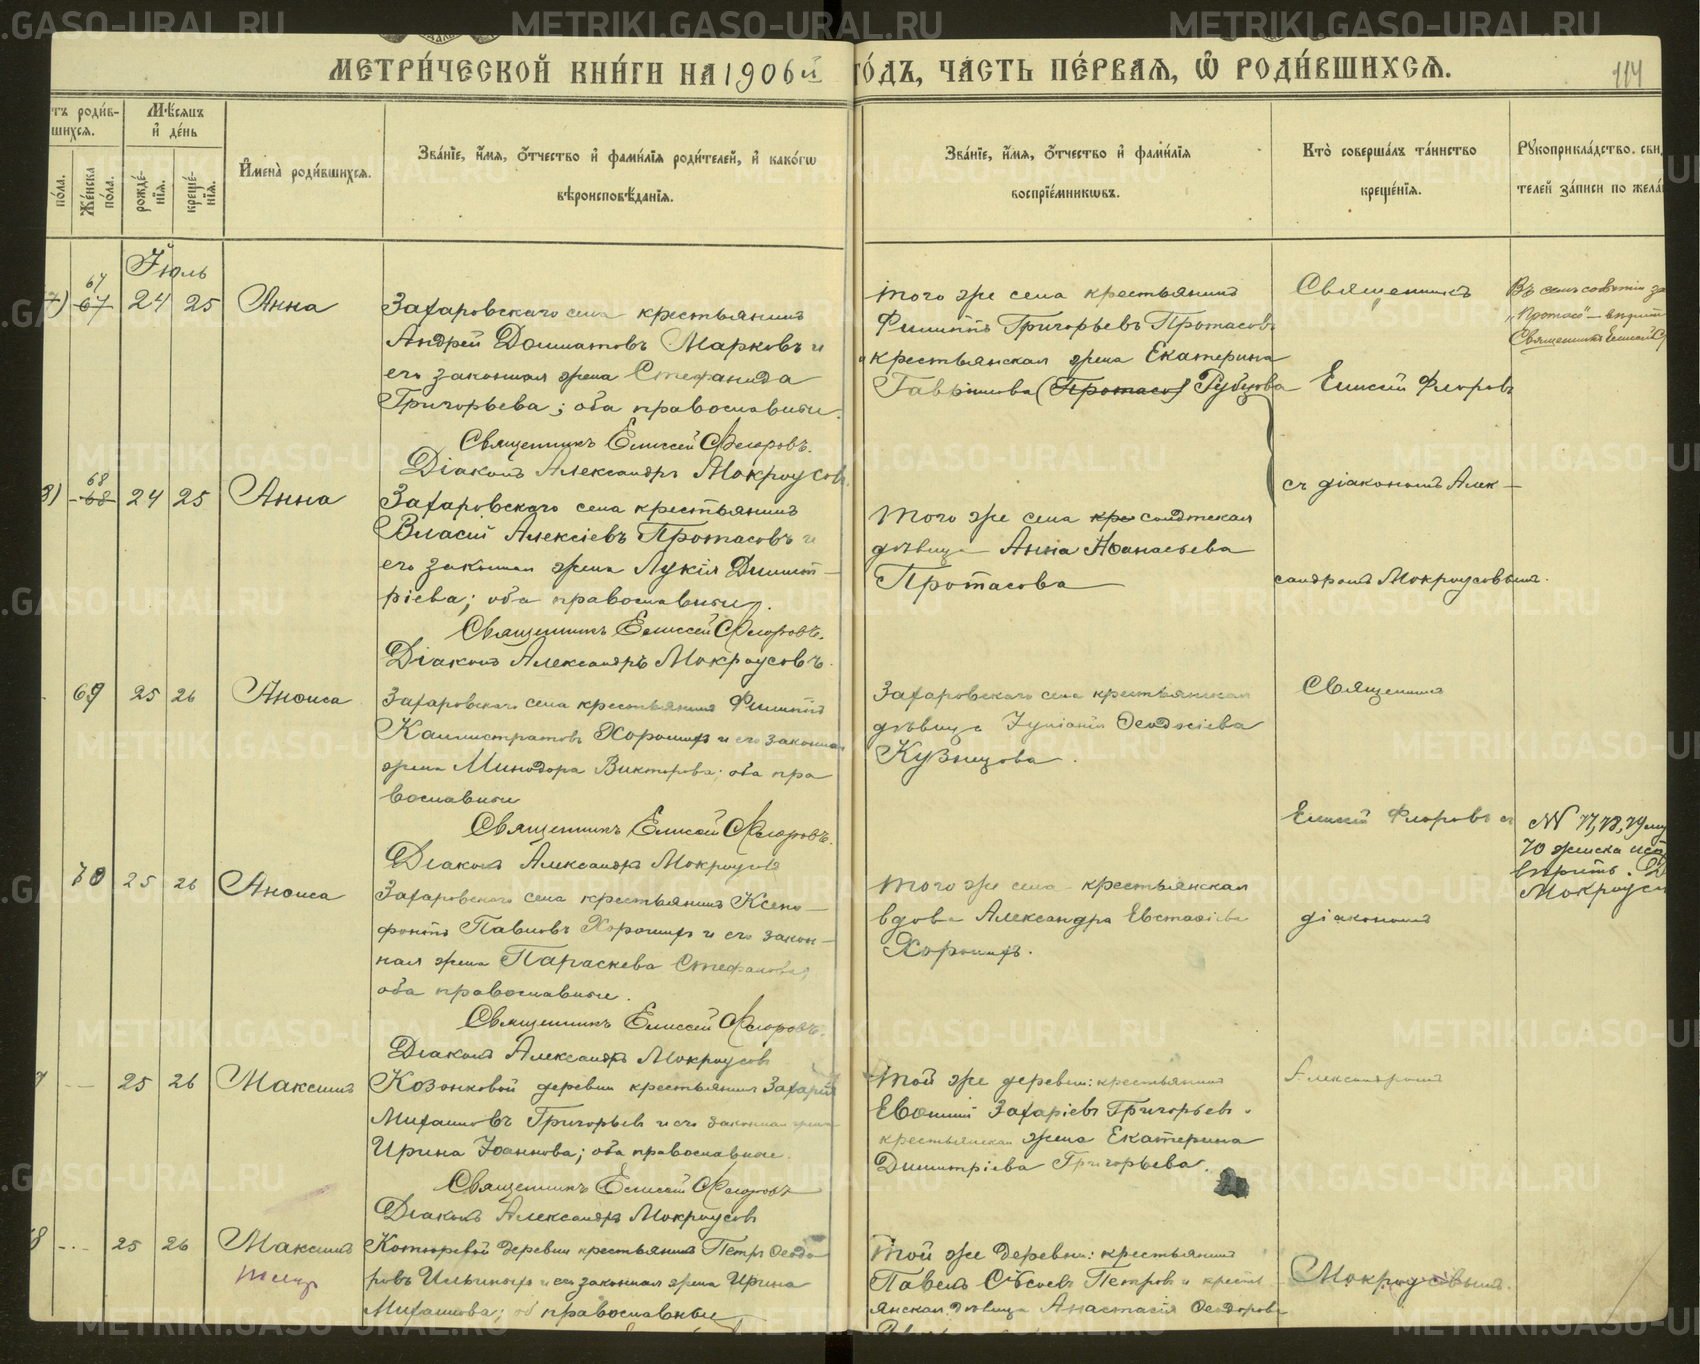 МЕТРИ́ЧЕСКОЙ КНИ́ГИ НА 1906й ГО́ДЪ, ЧА́СТЬ ПЕ́РВАЯ, Ѡ҆ РОДИ́ВШИХСЯ.
114
тъ роди́в-
шихся.
Мѣ́сяцъ
и҆ де́нь
по́ла.
Же́нска
по́ла.
рожде́-
нїя.
креще́-
нїя.
И҆мена̀ роди́вшихся.
Зва́нїе, и҆́мя, ѻ҆́тчество и҆ фами́лїя роди́телей, и҆ како́гѡ
вѣроисповѣ́данїя.
Зва́нїе, и҆́мя, ѻ҆́тчество и҆ фами́лїя
воспрїе́мникѡвъ.
Кто̀ соверша́лъ та́инство
креще́нїя.
Рꙋкоприкла́дство свидѣ
телей за́писи по жела́
Іюль
67
7) 67 24 25 Анна
Захаровскаго села крестьянинъ
Андрей Долматовъ Марковъ и
его законная жена Стефанида
Григорьева; оба православные.
Священникъ Елиссей Флоровъ.
Діаконъ Александръ Мокроусовъ
того же села крестьянинъ
Филиппъ Григорьевъ Протасовъ
и крестьянская жена Екатерина
Гавриилова (Протасов) Рубцова
Священникъ
Елисей Флоровъ
Въ семъ
Священникъ Елисей
68
8) 68 24 25 Анна
Захаровскаго села крестьянинъ
Власій Алексіевъ Протасовъ и
его законная жена Лукія Димит-
ріева; оба православные.
Священникъ Елиссей Флоровъ.
Діаконъ Александръ Мокроусовъ.
того же села кре солдтская
дѣвица Анна Аѳанасьева
Протасова
съ діакономъ Алек-
сандромъ Мокроусовымъ.
69 25 26 Анѳиса
Захаровскаго села крестьянинъ Филиппъ
Каллистратовъ Хорошихъ и его законная
жена Минодора Викторова; оба пра
вославные
Священникъ Елисей Флоровъ.
Діаконъ Александръ Мокроусовъ
Захаровскаго села крестьянская
дѣвица Іуліанія Ѳеодосіева
Кузнецова.
Священникъ
Елисей Флоровъ съ
N 77, 78, 79 му
70 женска
вѣрить. Д
Мокроусо
70 25 26 Анѳиса
Захаровскаго села крестьянинъ Ксено-
фонтъ Павловъ Хорошихъ и его закон-
ная жена Параскева Стефанова;
оба православные.
Священникъ Елиссей Флоровъ.
Діаконъ Александръ Мокроусовъ
того же села крестьянская
вдова Александра Евстаѳіева
Хорошихъ.
діакономъ
25 26 Максимъ
Козонковой деревни крестьянинъ Захарій
Михаиловъ Григорьевъ и его законная жена
Ирина Іоаннова; оба православные.
Священникъ Елиссей Флоровъ
Діаконъ Александръ Мокроусовъ
той же деревни: крестьянинъ
Евѳимій Захаріевъ Григорьевъ и
крестьянская жена Екатерина
Димитріева Григорьева.
Александромъ
8 25 26 Максимъ
деревни крестьянинъ Петръ Ѳеодо
ровъ Ильиныхъ и его законная жена Ирина
Михаилова; об православные
той же деревни: крестьянинъ
Павелъ Сысоевъ Петровъ и кресть
янская дѣвица Анастасія Ѳеодорова
Мокроусовымъ.
METRIKI.GASO-URAL.RU